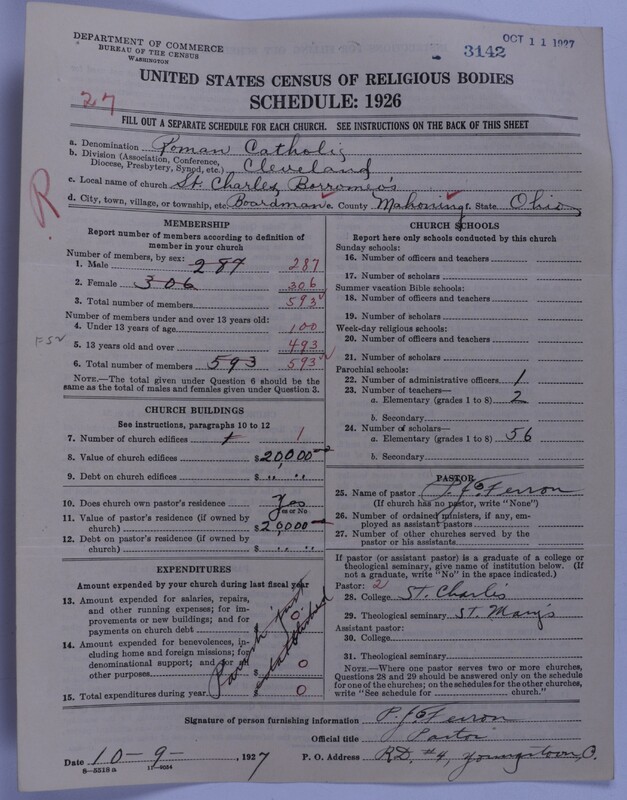 DEPARTMENT OF COMMERCE
BUREAU OF THE CENSUS
WASHINGTON
OCT 11 1927
3142
UNITED STATES CENSUS OF RELIGIOUS BODIES
SCHEDULE: 1926
27
FILL OUT A SEPARATE SCHEDULE FOR EACH CHURCH. SEE INSTRUCTIONS ON THE BACK OF THIS SHEET
a. Denomination Roman Catholic
b. Division (Association, Conference,
Diocese, Presbytery, Synod, etc.) Cleveland
c. Local name of church St. Charles Borromeo's
d. City, town, village, or township, etc. Boardman e. County Mahoning f. State Ohio
R
MEMBERSHIP
Report number of members according to definition of
member in your church
Number of members, by sex:
1. Male 287 287
2. Female 306 306
3. Total number of members 593
Number of members under and over 13 years old:
4. Under 13 years of age 100
5. 13 years old and over 493
6. Total number of members 593 593
NOTE.—The total given under Question 6 should be the
same as the total of males and females given under Question 3.
CHURCH BUILDINGS
See instructions, paragraphs 10 to 12
7. Number of church edifices 1 1
8. Value of church edifices $20,000
9. Debt on church edifices $
10. Does church own pastor's residence Yes
Yes or No
11. Value of pastor's residence (if owned by
church) $20,000
12. Debt on pastor's residence (if owned by
church) $
EXPENDITURES
Amount expended by your church during last fiscal year
13. Amount expended for salaries, repairs,
and other running expenses; for im-
provements or new buildings; and for
payments on church debt $ 0
14. Amount expended for benevolences, in-
cluding home and foreign missions; for
denominational support; and for all
other purposes $ 0
15. Total expenditures during year $ 0
Parish just
established
CHURCH SCHOOLS
Report here only schools conducted by this church
Sunday schools:
16. Number of officers and teachers
17. Number of scholars
Summer vacation Bible schools:
18. Number of officers and teachers
19. Number of scholars
Week-day religious schools:
20. Number of officers and teachers
21. Number of scholars
Parochial schools:
22. Number of administrative officers 1
23. Number of teachers—
a. Elementary (grades 1 to 8) 2
b. Secondary
24. Number of scholars—
a. Elementary (grades 1 to 8) 56
b. Secondary
PASTOR
25. Name of pastor P. J. Ferron
(If church has no pastor, write "None")
26. Number of ordained ministers, if any, em-
ployed as assistant pastors
27. Number of other churches served by the
pastor or his assistants
If pastor (or assistant pastor) is a graduate of a college or
theological seminary, give name of institution below. (If
not a graduate, write "No" in the space indicated.)
Pastor: 2
28. College St. Charles
29. Theological seminary St. Mary's
Assistant pastor:
30. College
31. Theological seminary
NOTE.—Where one pastor serves two or more churches,
Questions 28 and 29 should be answered only on the schedule
for one of the churches; on the schedules for the other churches,
write "See schedule for church."
Signature of person furnishing information P. J. Ferron
Official title Pastor
Date 10-9-, 1927 P. O. Address R.D. #4, Youngstown, O.
8—5518 a 11—9054